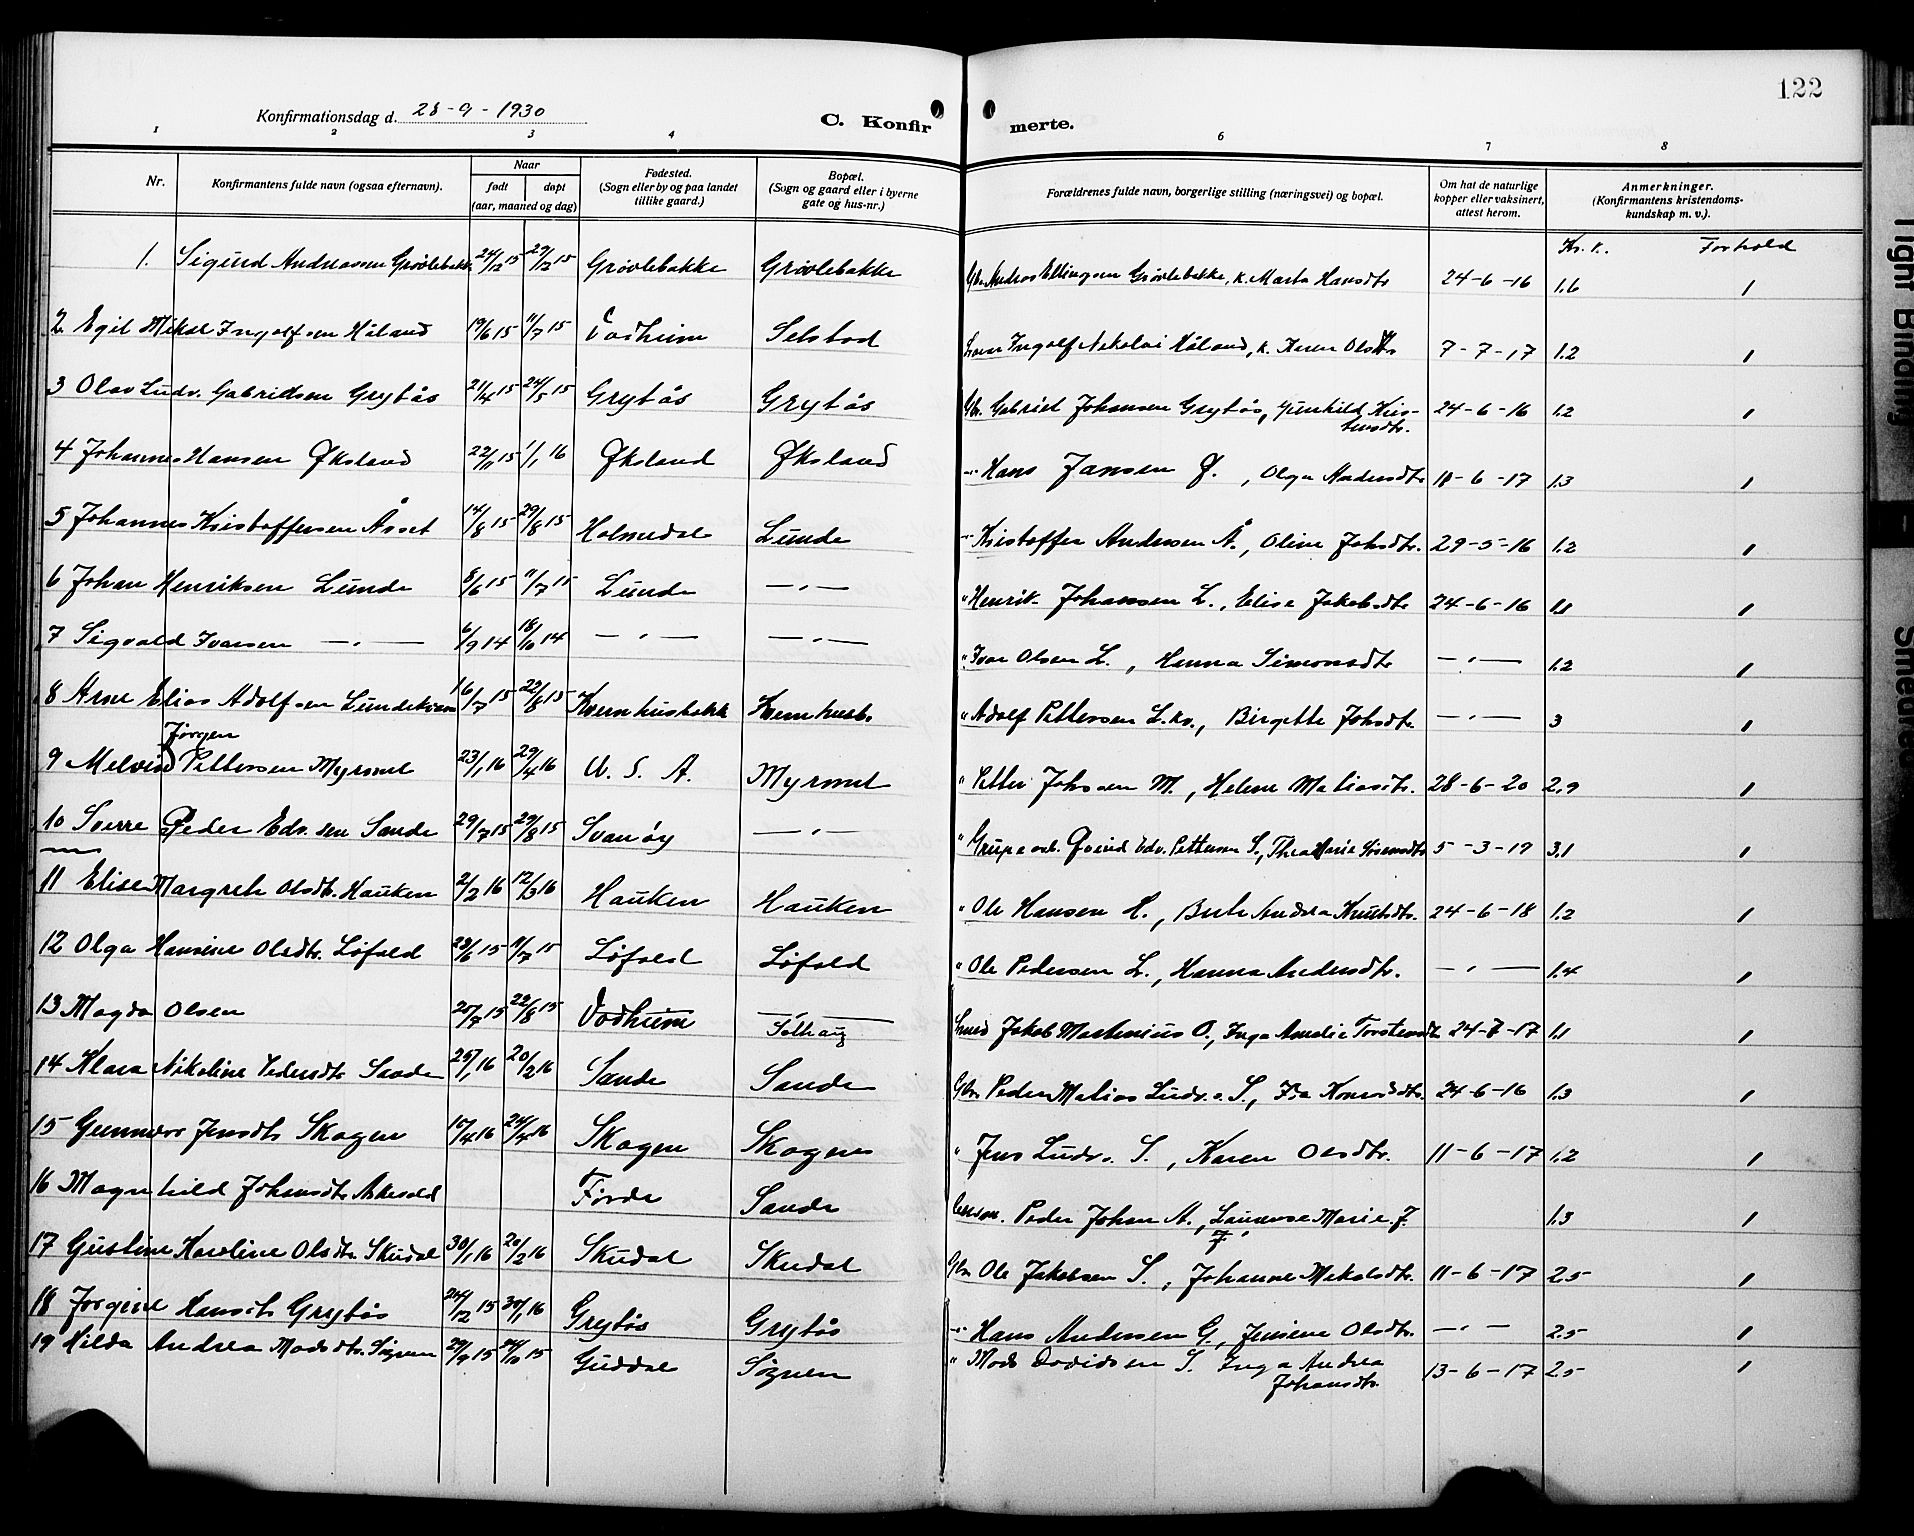 122
Konfirmationsdag d. 28-9-1930
C. Konfirmerte.
1 2 3 4 6 7 8
Nr. Konfirmantens fulde navn (ogsaa efternavn). Naar født døpt (aar, maaned og dag) Fødested. (Sogn eller by og paa landet tillike gaard.) Bopæl. (Sogn og gaard eller i byerne gate og hus-nr.) Forældrenes fulde navn, borgerlige stilling (næringsvei) og bopæl. Om hat de naturlige kopper eller vaksinert, attest herom. Anmerkninger. (Konfirmantens kristendomskundskap m. v.).
Kr. k. Forhold
1. Sigurd Andreassen Grøvlebakke 24/12 15 29/12 15 Grøvlebakke Grøvlebakke Gbr. Andreas Ellingsen Grøvlebakke, k. Marta Hansdtr 24-6-16 1.6 1
2 Egil Mikal Ingolfsen Håland 19/6 15 11/7 15 Vadheim Selstad Ingolf Nikolai Håland, k. Karen Olsdtr 7-7-17 1.2 1
3 Olav Ludv. Gabrielsen Grytås 21/4 15 24/5 15 Grytås Grytås Gbr. Gabriel Johansen Grytås, Gunhild Kristensdtr. 24-6-16 1.2 1
4 Johannes Hansen Øksland 22/11 15 1/1 16 Øksland Øksland -"- Hans Jansen Ø., Olga Andersdtr 18-6-17 1.3 1
5 Johannes Kristoffersen Åset 14/8 15 29/8 15 Holmedal Lunde -"- Kristoffer Andersen Å., Oline Johsdtr. 29-5-16 1.2 1
6 Johan Henriksen Lunde 8/6 15 11/7 15 Lunde —"— " Henrik Johansen L., Elise Jakobsdtr 24-6-16 1.1 1
7 Sigvald Ivarsen —"— 6/9 14 18/10 14 —"— —"— " Ivar Olsen L., Hanna Simonsdtr —"— 1.2 1
8 Arne Elias Adolfsen Lundekvam 16/7 15 22/8 15 Kvernhusbakk Kvernhusb. " Adolf Pettersen L.kv., Birgitte Johsdtr. —"— 3 1
9 Melvin Jørgen Pettersen Myrmel 23/1 16 29/4 16 U. S. A. Myrmel " Petter Johnsen M., Helene Matiasdtr. 28-6-20 2.9 1
10 Sverre Peder Edv.sen Sande 29/7 15 29/8 15 Svanøy —"— " Gruvearb. Øvind Edv. Pettersen S., Thea Marie Sørensdtr 5-3-19 3.1 1
11 Elise Margrete Olsdtr. Hauken 2/2 16 12/3 16 Hauken Hauken " Ole Hansen H., Berte Andrea Knutsdtr. 24-6-18 1.2 1
12 Olga Hansine Olsdtr. Løfald 23/6 15 11/7 15 Løfald Løfald " Ole Pedersen L., Hanna Andersdtr. —"— 1.4 1
13 Magda Olsen 20/7 15 22/8 15 Vadheim Solhaug Smed Jakob Martenius O., Inga Amalie Torstensdtr 24-7-17 1.1 1
14 Klara Nikoline Pedersdtr Sande 25/1 16 20/2 16 Sande Sande Gbr. Peder Matias Ludv. S., Ida Konradsdtr. 24-6-16 1.3 1
15 Gunnvor Jensdtr Skogen 10/4 16 24/4 16 Skogen Skogen " Jens Ludv. S., Karen Olsdtr. 11-6-17 1.2 1
16 Magnhild Johansdtr Askvold Førde Sande Peder Johan A., Laurense Marie J. F. 1.3 1
17 Gustine Karoline Olsdtr. Skudal 30/1 16 20/2 16 Skudal Skudal Gbr Ole Jakobsen S., Johanne Mikalsdtr. 11-6-17 2.5 1
18 Jørgine Hansdtr Grytås 24/12 15 30/1 16 Grytås Grytås -"- Hans Andersen G., Jensine Olsdtr. —"— 2.5 1
19 Hilda Andrea Madsdtr. Sognen 29/9 15 24/10 15 Guddal Sognen " Mads Davidsen S. Inga Andrea Johansdtr. 13-6-17 2.5 1
Tight Binding
Smedreset